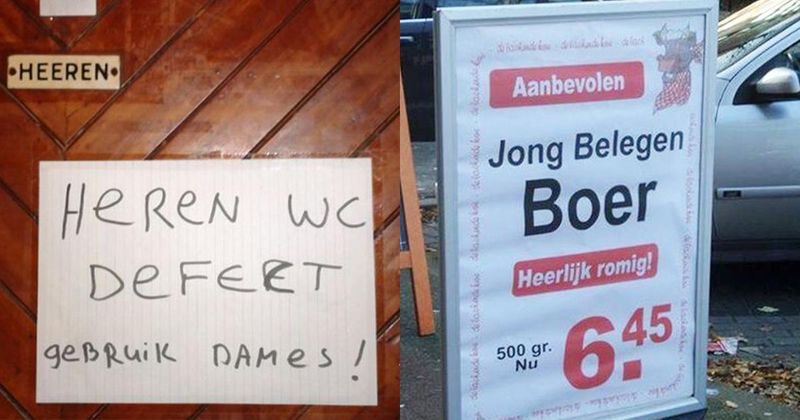 HEEREN
HEREN WC
DEFECT
GEBRUIK DAMES!
Aanbevolen
Jong Belegen
Boer
Heerlijk romig!
500 gr.
Nu
6.45